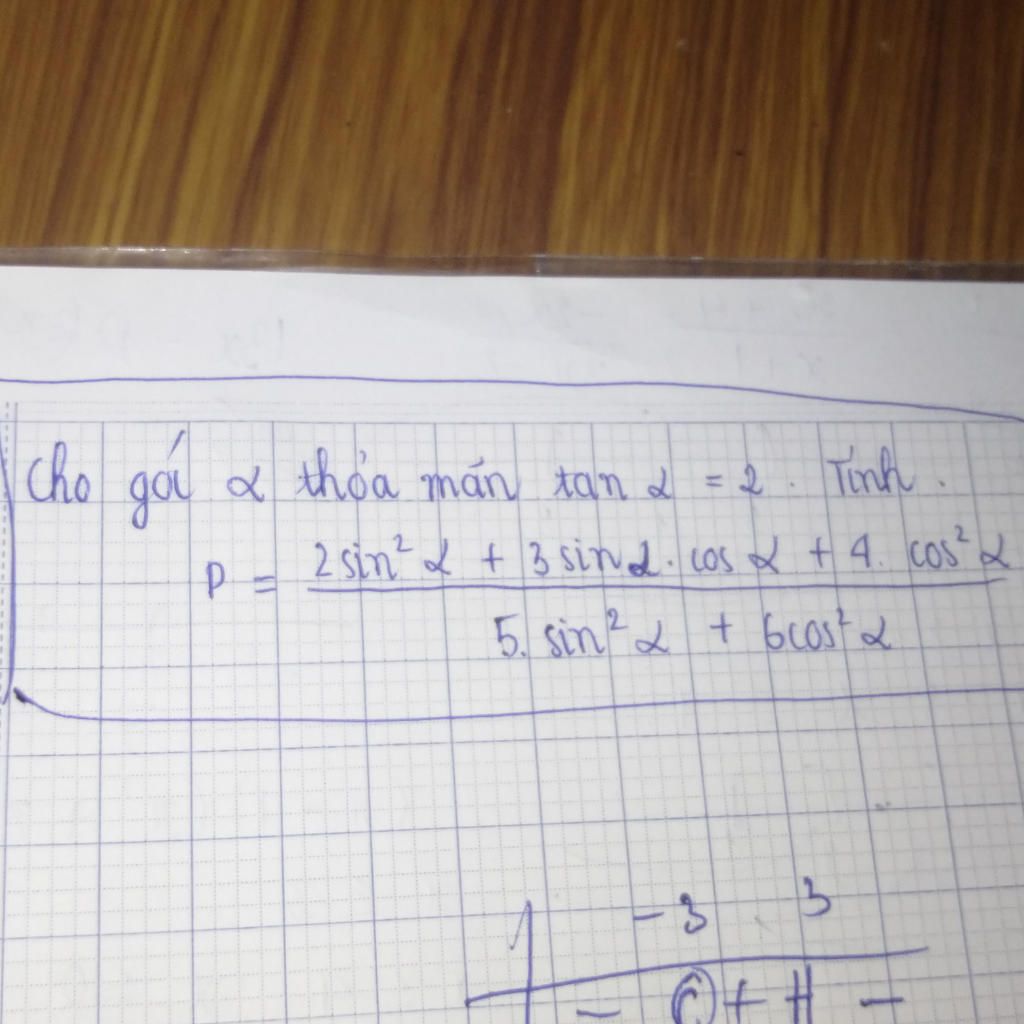 Cho gói α thỏa mãn tan α = 2. Tính.
P = (2sin² α + 3 sin α. cos α + 4. cos² α) / (5. sin² α + 6cos² α)
-3 3
- + + -